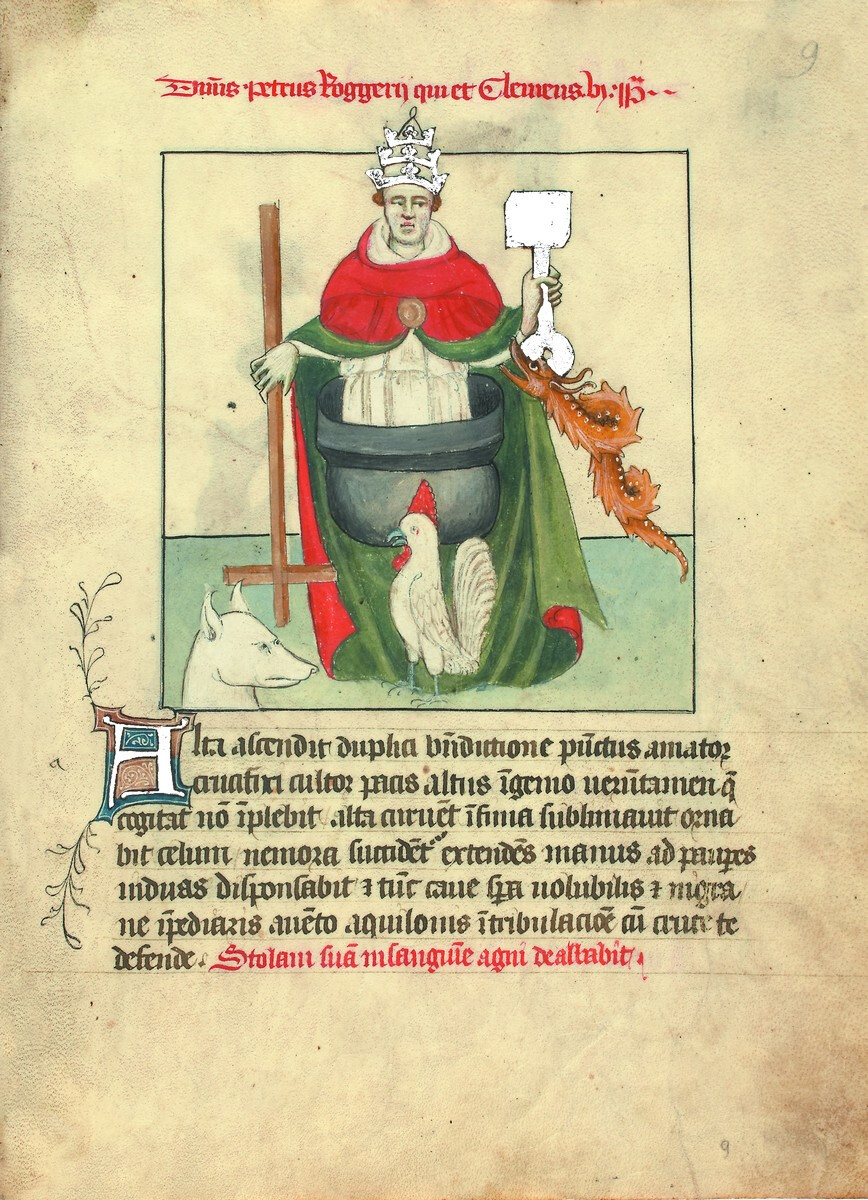 9
Dn̄us petrus Roggerij qui et Clemens. vj. pp̄
Alta ascendit duplici bn̄dictione pūctus amator
crucifixi cultor pacis altus īgenio uerūtamen q̄
cogitat nō īplebit alta curuēt īfima sublimauit orna
bit celum nemora succidēt extendēs manus ad paupes
induas disponsabit ⁊ tūc caue spa uolubilis ⁊ nigra
ne īpediaris aduēto aquilonis ītribulacōe cū cruce te
defende. Stolam suā insanguīe agni dealbabit.
9